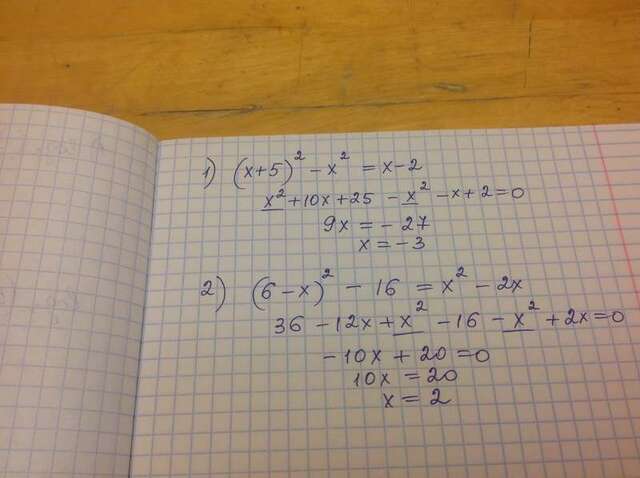 1) (x+5)² - x² = x-2
x² + 10x + 25 - x² - x + 2 = 0
9x = - 27
x = - 3
2) (6 - x)² - 16 = x² - 2x
36 - 12x + x² - 16 - x² + 2x = 0
- 10x + 20 = 0
10x = 20
x = 2